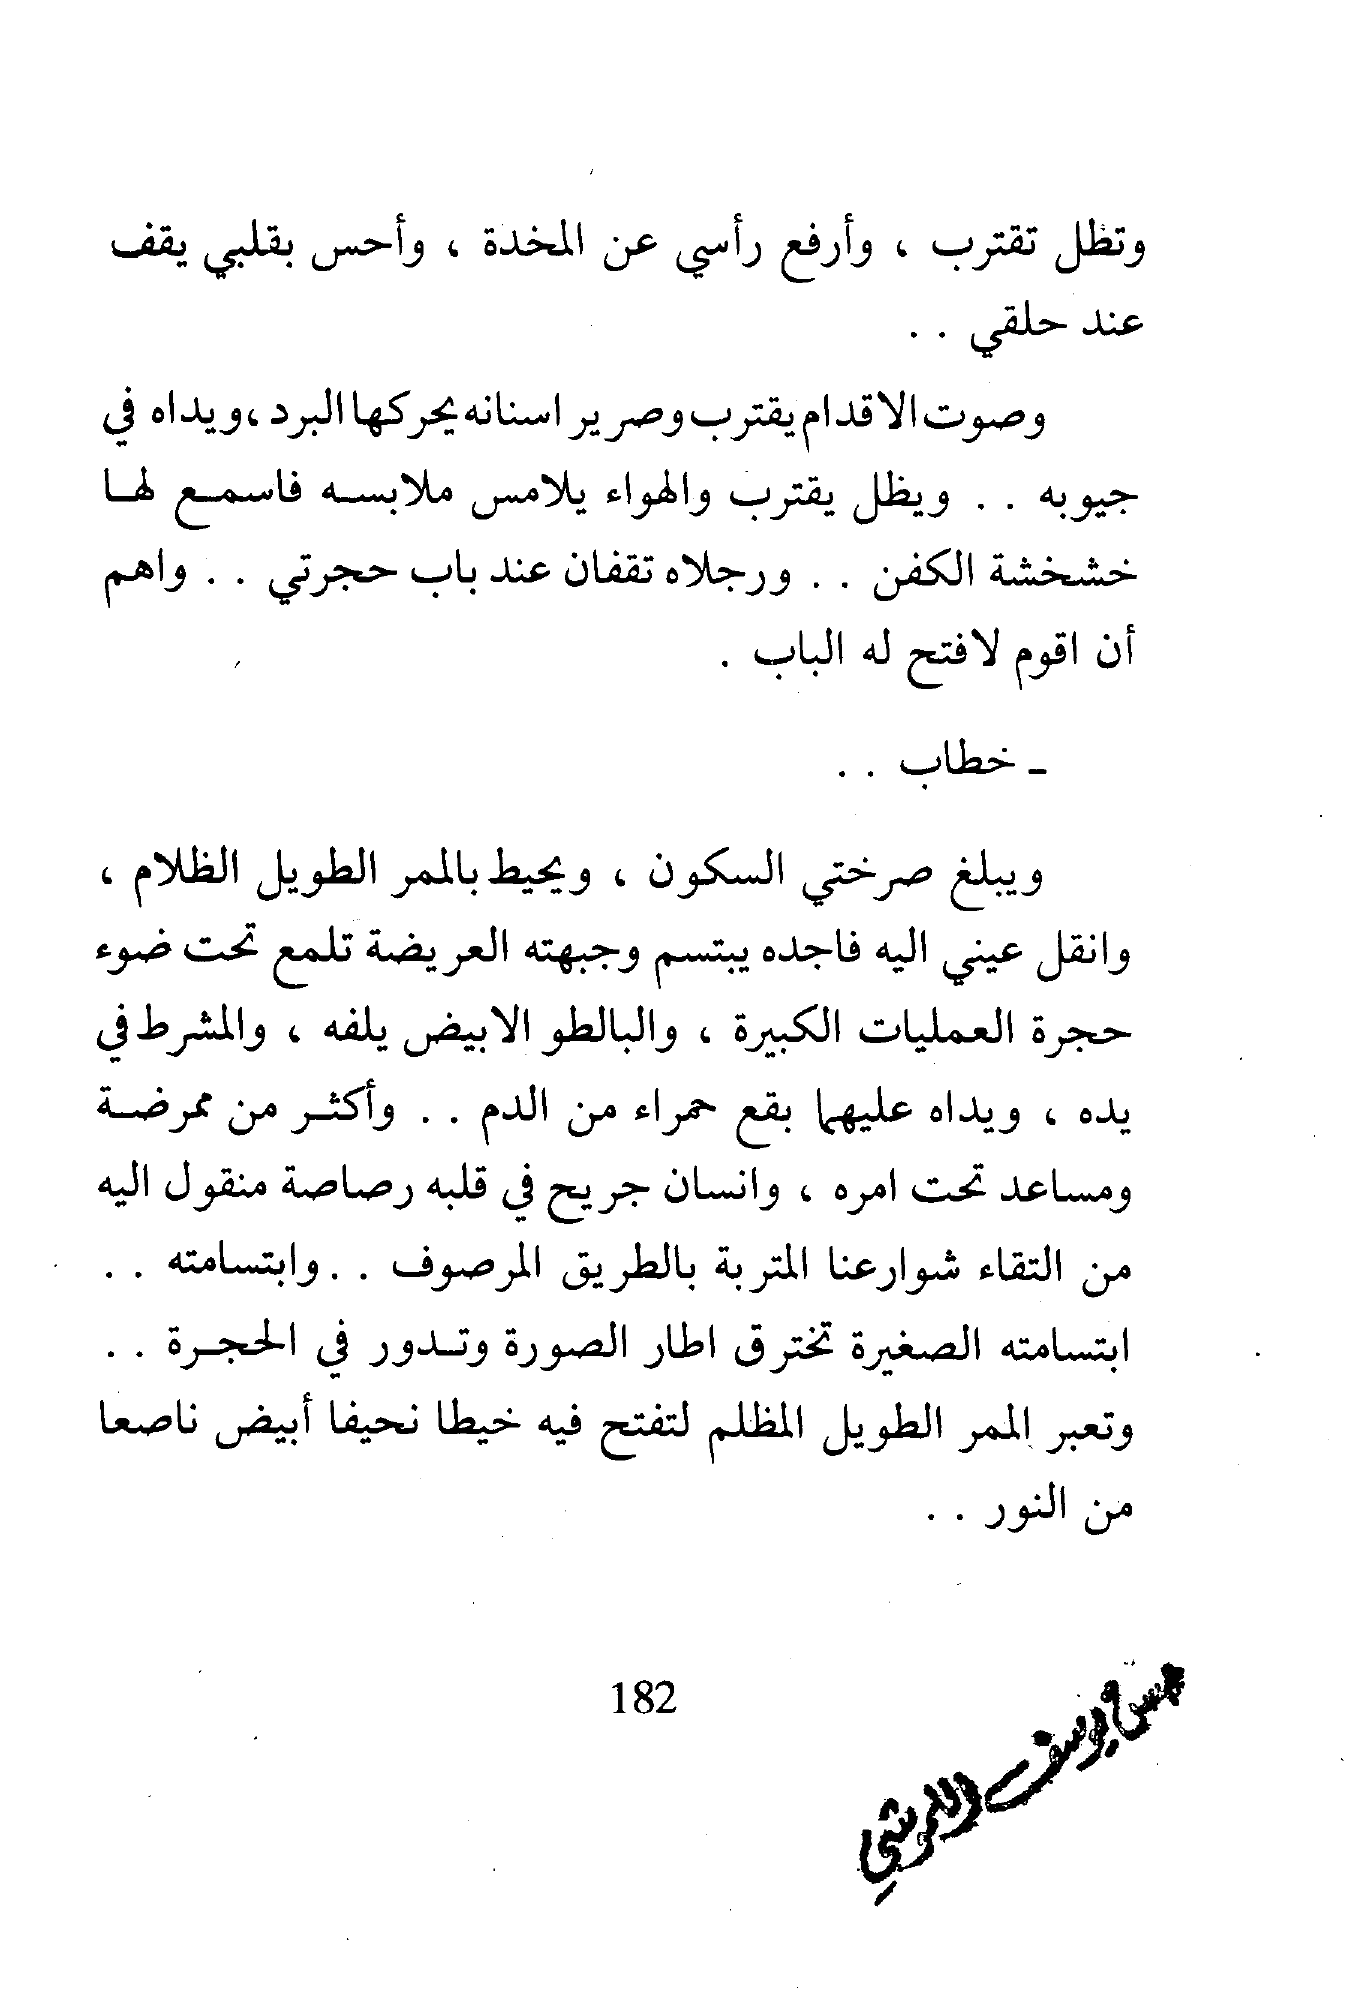 وتظل تقترب ، وأرفع رأسي عن المخدة ، وأحس بقلبي يقف
عند حلقي . .
وصوت الاقدام يقترب وصرير اسنانه يحركها البرد ، ويداه في
جيوبه . . ويظل يقترب والهواء يلامس ملابسه فاسمع لها
خشخشة الكفن . . ورجلاه تقفان عند باب حجرتي . . واهم
أن اقوم لافتح له الباب .
ـ خطاب . .
ويبلغ صرختي السكون ، ويحيط بالممر الطويل الظلام ،
وانقل عيني اليه فاجده يبتسم وجبهته العريضة تلمع تحت ضوء
حجرة العمليات الكبيرة ، والبالطو الابيض يلفه ، والمشرط في
يده ، ويداه عليهما بقع حمراء من الدم . . وأكثر من ممرضة
ومساعد تحت امره ، وانسان جريح في قلبه رصاصة منقول اليه
من التقاء شوارعنا المتربة بالطريق المرصوف . . وابتسامته . .
ابتسامته الصغيرة تخترق اطار الصورة وتدور في الحجرة . .
وتعبر الممر الطويل المظلم لتفتح فيه خيطا نحيفا أبيض ناصعا
من النور . .
182
يوسف